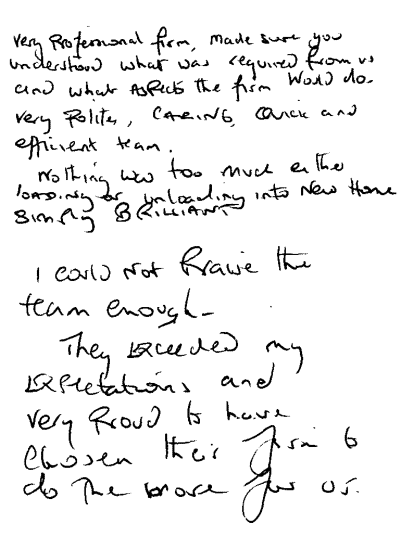 very Professional firm, made sure you
understood what was required from us
and what Aspects the firm would do.
very Polite, CARING, Quick and
efficient team.
Nothing was too much either
loading or unloading into New Home
Simply BRILLIANT
I could not Praise the
team enough-
They Exceeded my
Expectations and
very Proud to have
chosen their firm to
do the move for us.